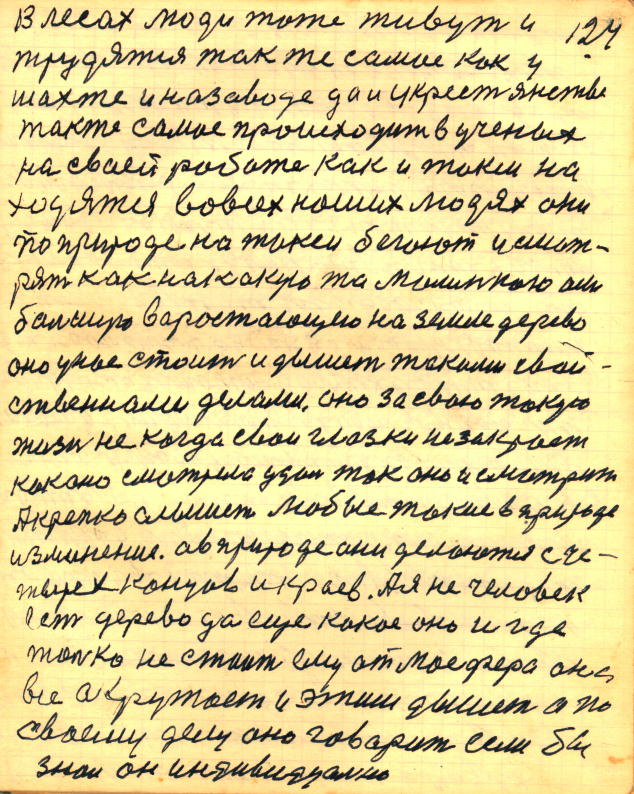 В лесах люди тоже живут и 124
трудятся так же самое как у
шахте и на заводе да и укрестянстве
также самое происходит в ученых
на своей работе как и такеи на
ходятся во всех наших людях они
по природе на такеи бегают и смот-
рят как на какую та малинкаю или
балшую варостающею на земле дерево
оно уное стоит и дышет такими свой-
ственнами делами. оно за свою такую
жизн не когда свои глазки не закроет
как оно смотрела удал так оно и смотрит
А крепко слышет любые такие в природе
изминение. а в природе они делаются с че-
тырех концов и краев. А я не человек
ест дерево да еще какое оно и где
толко не стоит ему атмосфера она
все акружает и этим дышет а по
своему делу оно говарит если бы
знал он индивидуално